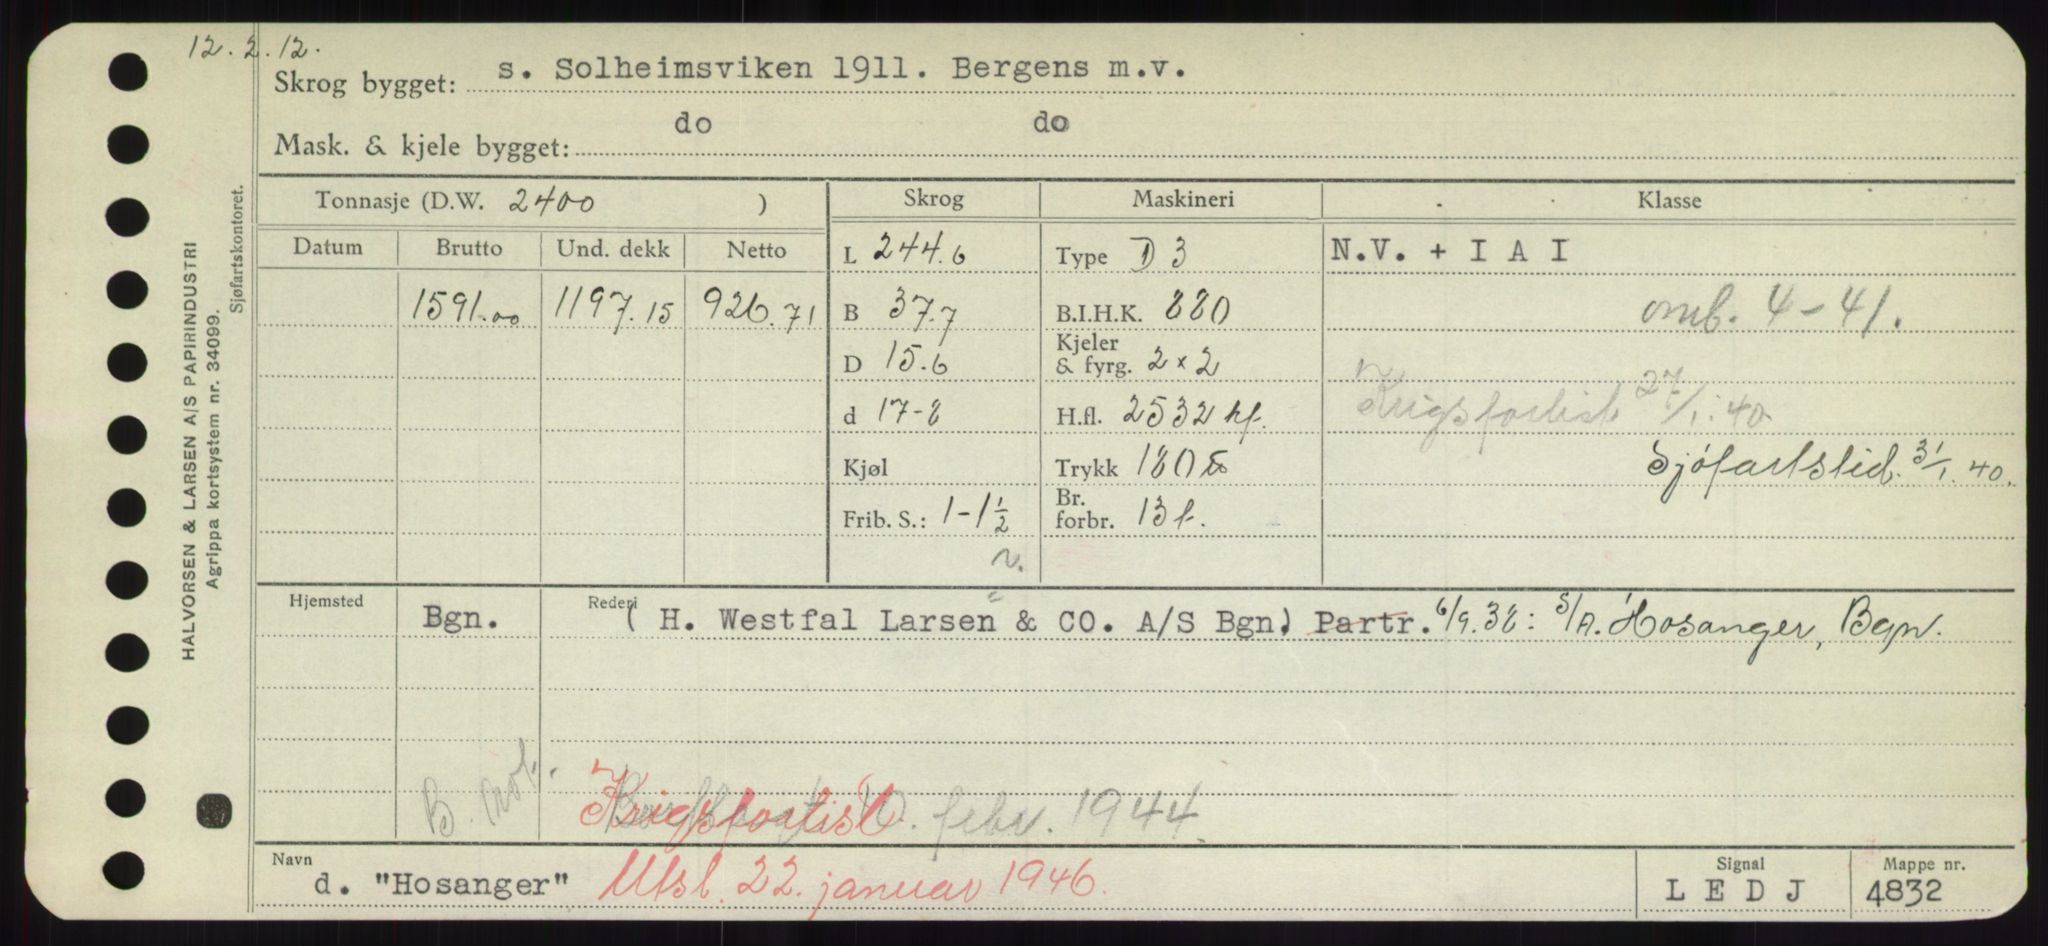 12.2.12.
Skrog bygget: s. Solheimsviken 1911. Bergens m.v.
Mask. & kjele bygget: do do
Tonnasje (D.W. 2400 ) Skrog Maskineri Klasse
Datum Brutto Und. dekk Netto L 244.6 Type D 3 N.V. + I A I
1591.00 1197.15 926.71 B 37.7 B.I.H.K. 880 omb. 4-41.
D 15.6 Kjeler & fyrg. 2 x 2 Krigsforlist 27/1.40
d 17-8 H.fl. 2532 hf.
Kjøl Trykk 180 Sjøfartstid. 31/1.40.
Frib. S.: 1-1 1/2 Br. forbr. 13 t.
v.
Hjemsted Bgn. Rederi ( H. Westfal Larsen & CO. A/S Bgn) Partr. 6/9.38: S/A. Hosanger, Bgn.
B. not. Krigsforlist febr. 1944.
Navn d. "Hosanger" Utsl. 22. januar 1946. Signal L E D J Mappe nr. 4832
HALVORSEN & LARSEN A/S PAPIRINDUSTRI
Agrippa kortsystem nr. 34099.
Sjøfartskontoret.